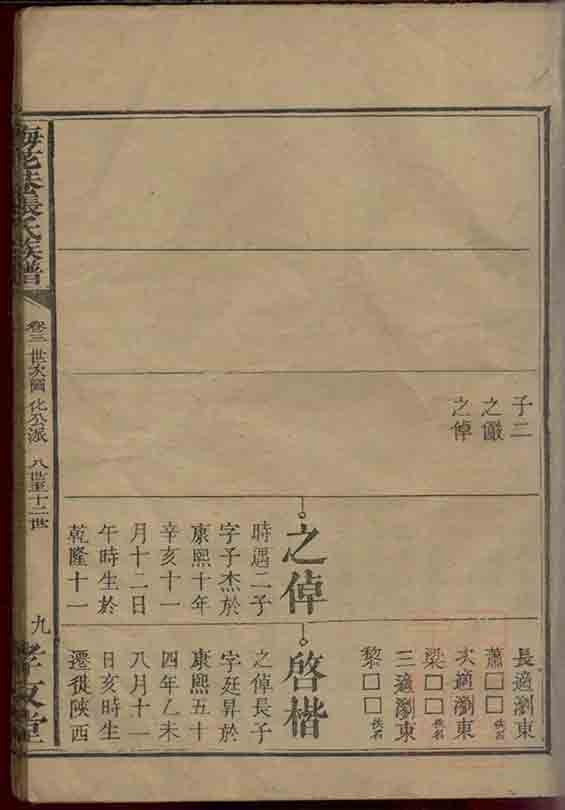 子二
之儼
之倬
之倬
時遇二子
字子杰於
康熙十年
辛亥十一
月十二日
午時生於
乾隆十一
長適瀏東
蕭□□佚名
次適瀏東
梁□□佚名
三適瀏東
黎□□佚名
啓楷
之倬長子
字廷昇於
康熙五十
四年乙未
八月十一
日亥時生
遷徙陝西
梅花巷張氏族譜
卷三 世次圖 化公派 八世至十二世
九
孝友堂